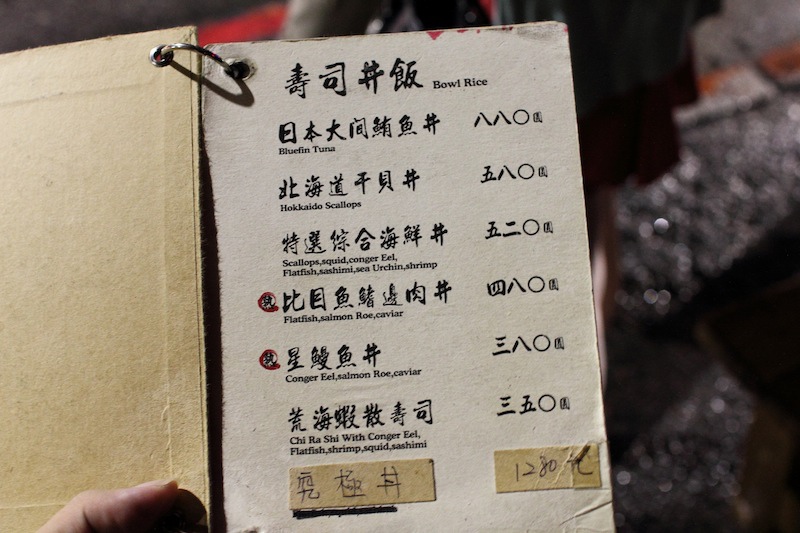 壽司丼飯 Bowl Rice
日本大间鮪魚丼 八八〇圓
Bluefin Tuna
北海道干貝丼 五八〇圓
Hokkaido Scallops
特選综合海鮮丼 五二〇圓
Scallops,squid,conger Eel,
Flatfish,sashimi,sea Urchin,shrimp
比目魚鰭邊肉丼 四八〇圓
Flatfish,salmon Roe,caviar
星鰻魚丼 三八〇圓
Conger Eel,salmon Roe,caviar
荒海蝦散壽司 三五〇圓
Chi Ra Shi With Conger Eel,
Flatfish,shrimp,squid,sashimi
究極丼 1280元